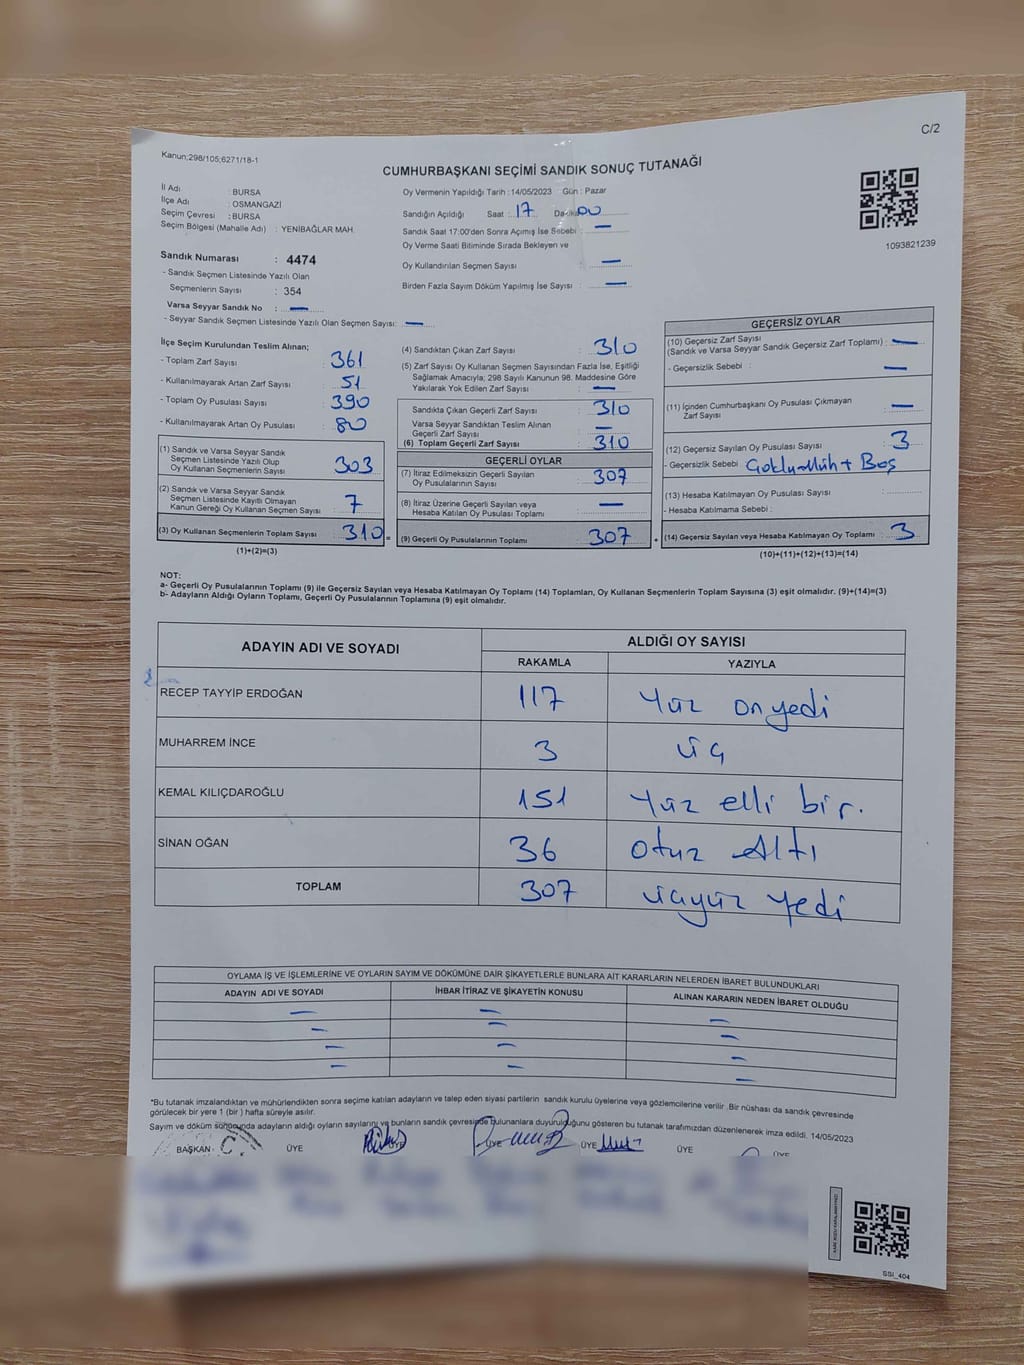 C/2
Kanun;298/105;6271/18-1
CUMHURBAŞKANI SEÇİMİ SANDIK SONUÇ TUTANAĞI
İl Adı : BURSA
İlçe Adı : OSMANGAZİ
Seçim Çevresi : BURSA
Seçim Bölgesi (Mahalle Adı) : YENİBAĞLAR MAH.
Sandık Numarası : 4474
- Sandık Seçmen Listesinde Yazılı Olan
Seçmenlerin Sayısı : 354
Varsa Seyyar Sandık No : —
- Seyyar Sandık Seçmen Listesinde Yazılı Olan Seçmen Sayısı: —
Oy Vermenin Yapıldığı Tarih : 14/05/2023 Gün : Pazar
Sandığın Açıldığı Saat : 17 Dakika 00
Sandık Saat 17:00'den Sonra Açımış İse Sebebi : —
Oy Verme Saati Bitiminde Sırada Bekleyen ve
Oy Kullandırılan Seçmen Sayısı : —
Birden Fazla Sayım Döküm Yapılmış İse Sayısı : —
1093821239
İlçe Seçim Kurulundan Teslim Alınan;
- Toplam Zarf Sayısı : 361
- Kullanılmayarak Artan Zarf Sayısı : 51
- Toplam Oy Pusulası Sayısı : 390
- Kullanılmayarak Artan Oy Pusulası : 80
(1) Sandık ve Varsa Seyyar Sandık
Seçmen Listesinde Yazılı Olup
Oy Kullanan Seçmenlerin Sayısı : 303
(2) Sandık ve Varsa Seyyar Sandık
Seçmen Listesinde Kayıtlı Olmayan
Kanun Gereği Oy Kullanan Seçmen Sayısı : 7
(3) Oy Kullanan Seçmenlerin Toplam Sayısı : 310 =
(1)+(2)=(3)
(4) Sandıktan Çıkan Zarf Sayısı : 310
(5) Zarf Sayısı Oy Kullanan Seçmen Sayısından Fazla İse, Eşitliği
Sağlamak Amacıyla; 298 Sayılı Kanunun 98. Maddesine Göre
Yakılarak Yok Edilen Zarf Sayısı : —
Sandıkta Çıkan Geçerli Zarf Sayısı : 310
Varsa Seyyar Sandıktan Teslim Alınan
Geçerli Zarf Sayısı : —
(6) Toplam Geçerli Zarf Sayısı : 310
GEÇERLİ OYLAR
(7) İtiraz Edilmeksizin Geçerli Sayılan
Oy Pusulalarının Sayısı : 307
(8) İtiraz Üzerine Geçerli Sayılan veya
Hesaba Katılan Oy Pusulası Toplamı : —
(9) Geçerli Oy Pusulalarının Toplamı : 307 +
GEÇERSİZ OYLAR
(10) Geçersiz Zarf Sayısı
(Sandık ve Varsa Seyyar Sandık Geçersiz Zarf Toplamı) : —
- Geçersizlik Sebebi : —
(11) İçinden Cumhurbaşkanı Oy Pusulası Çıkmayan
Zarf Sayısı : —
(12) Geçersiz Sayılan Oy Pusulası Sayısı : 3
- Geçersizlik Sebebi Boş
(13) Hesaba Katılmayan Oy Pusulası Sayısı :
- Hesaba Katılmama Sebebi :
(14) Geçersiz Sayılan veya Hesaba Katılmayan Oy Toplamı : 3
(10)+(11)+(12)+(13)=(14)
NOT:
a- Geçerli Oy Pusulalarının Toplamı (9) ile Geçersiz Sayılan veya Hesaba Katılmayan Oy Toplamı (14) Toplamları, Oy Kullanan Seçmenlerin Toplam Sayısına (3) eşit olmalıdır. (9)+(14)=(3)
b- Adayların Aldığı Oyların Toplamı, Geçerli Oy Pusulalarının Toplamına (9) eşit olmalıdır.
ADAYIN ADI VE SOYADI ALDIĞI OY SAYISI
RAKAMLA YAZIYLA
RECEP TAYYİP ERDOĞAN 117 Yüz on yedi
MUHARREM İNCE 3 üç
KEMAL KILIÇDAROĞLU 151 Yüz elli bir.
SİNAN OĞAN 36 otuz Altı
TOPLAM 307 üçyüz Yedi
OYLAMA İŞ VE İŞLEMLERİNE VE OYLARIN SAYIM VE DÖKÜMÜNE DAİR ŞİKAYETLERLE BUNLARA AİT KARARLARIN NELERDEN İBARET BULUNDUKLARI
ADAYIN ADI VE SOYADI İHBAR İTİRAZ VE ŞİKAYETİN KONUSU ALINAN KARARIN NEDEN İBARET OLDUĞU
— — —
— — —
— — —
— — —
*Bu tutanak imzalandıktan ve mühürlendikten sonra seçime katılan adayların ve talep eden siyasi partilerin sandık kurulu üyelerine veya gözlemcilerine verilir .Bir nüshası da sandık çevresinde
görülecek bir yere 1 (bir ) hafta süreyle asılır.
Sayım ve döküm sonucunda adayların aldığı oyların sayılarını ve bunların sandık çevresinde bulunanlara duyurulduğunu gösteren bu tutanak tarafımızdan düzenlenerek imza edildi. 14/05/2023
BAŞKAN ÜYE ÜYE ÜYE ÜYE ÜYE ÜYE
SSI_404